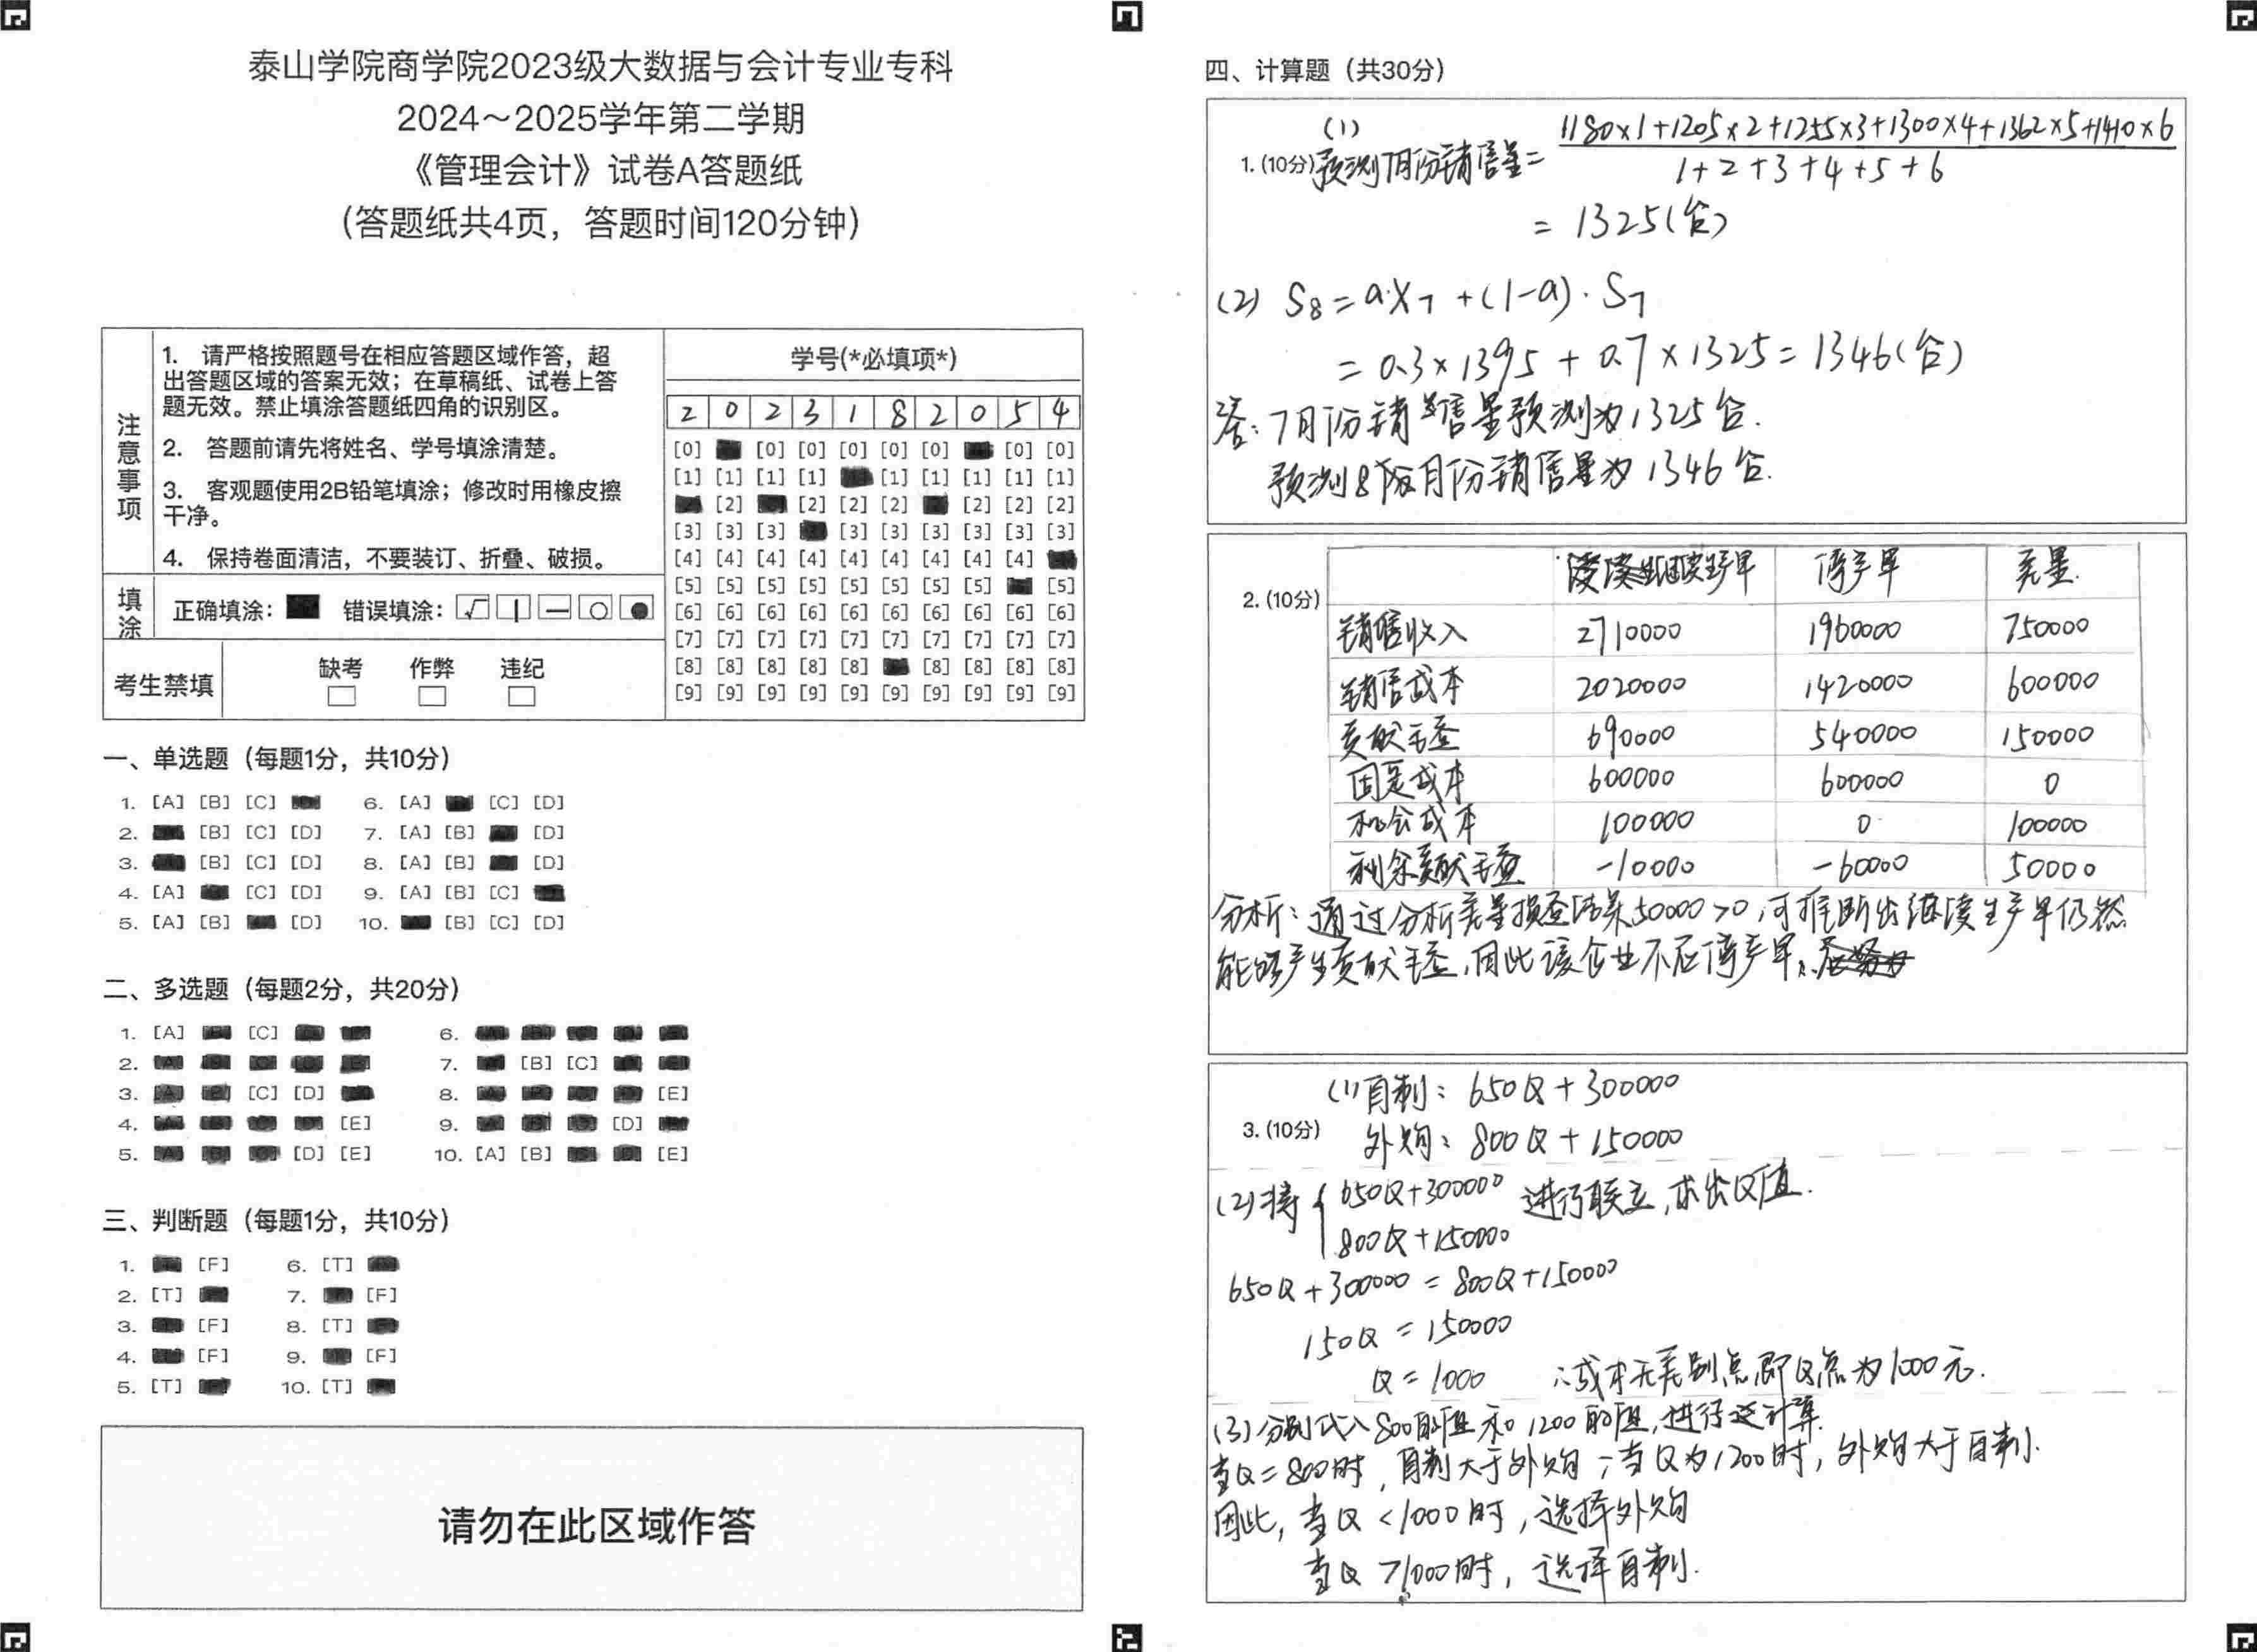 泰山学院商学院2023级大数据与会计专业专科
2024～2025学年第二学期
《管理会计》试卷A答题纸
(答题纸共4页，答题时间120分钟)
注意事项
1. 请严格按照题号在相应答题区域作答，超
出答题区域的答案无效；在草稿纸、试卷上答
题无效。禁止填涂答题纸四角的识别区。
2. 答题前请先将姓名、学号填涂清楚。
3. 客观题使用2B铅笔填涂；修改时用橡皮擦
干净。
4. 保持卷面清洁，不要装订、折叠、破损。
填涂 正确填涂： 错误填涂：
考生禁填 缺考 作弊 违纪
学号(*必填项*)
2 0 2 3 1 8 2 0 5 4
[0] [0] [0] [0] [0] [0] [0] [0]
[1] [1] [1] [1] [1] [1] [1] [1] [1]
[2] [2] [2] [2] [2] [2] [2]
[3] [3] [3] [3] [3] [3] [3] [3] [3]
[4] [4] [4] [4] [4] [4] [4] [4] [4]
[5] [5] [5] [5] [5] [5] [5] [5] [5]
[6] [6] [6] [6] [6] [6] [6] [6] [6] [6]
[7] [7] [7] [7] [7] [7] [7] [7] [7] [7]
[8] [8] [8] [8] [8] [8] [8] [8] [8]
[9] [9] [9] [9] [9] [9] [9] [9] [9] [9]
一、单选题（每题1分，共10分）
1. [A] [B] [C] 6. [A] [C] [D]
2. [B] [C] [D] 7. [A] [B] [D]
3. [B] [C] [D] 8. [A] [B] [D]
4. [A] [C] [D] 9. [A] [B] [C]
5. [A] [B] [D] 10. [B] [C] [D]
二、多选题（每题2分，共20分）
1. [A] [C] 6.
2. 7. [B] [C]
3. [C] [D] 8. [E]
4. [E] 9. [D]
5. [D] [E] 10. [A] [B] [E]
三、判断题（每题1分，共10分）
1. [F] 6. [T]
2. [T] 7. [F]
3. [F] 8. [T]
4. [F] 9. [F]
5. [T] 10. [T]
请勿在此区域作答
四、计算题（共30分）
(1)
1.(10分) 预测7月份销售量= (1180×1+1205×2+1255×3+1300×4+1362×5+1410×6)/(1+2+3+4+5+6)
= 1325(台)
(2) S₈=a·X₇+(1-a)·S₇
= 0.3×1395+0.7×1325=1346(台)
答：7月份销售量预测为1325台.
预测8月份销售量为1346台.
2.(10分)
继续生产早 停产早 差量.
销售收入 2710000 1960000 750000
销售成本 2020000 1420000 600000
贡献毛益 690000 540000 150000
固定成本 600000 600000 0
机会成本 100000 0 100000
剩余贡献毛益 -10000 -60000 50000
分析：通过分析差量损益结果50000>0，可推断出继续生产早仍然
能够产生贡献毛益，因此该企业不应停产早。
3.(10分)
(1)自制：650Q+300000
外购：800Q+150000
(2)将{650Q+300000 进行联立，求出Q值.
800Q+150000
650Q+300000=800Q+150000
150Q=150000
Q=1000 ∴成本无差别点即Q点为1000元.
(3)分别代入800的值和1200的值，进行计算.
当Q=800时，自制大于外购；当Q为1200时，外购大于自制.
因此，当Q<1000时，选择外购
当Q>1000时，选择自制.